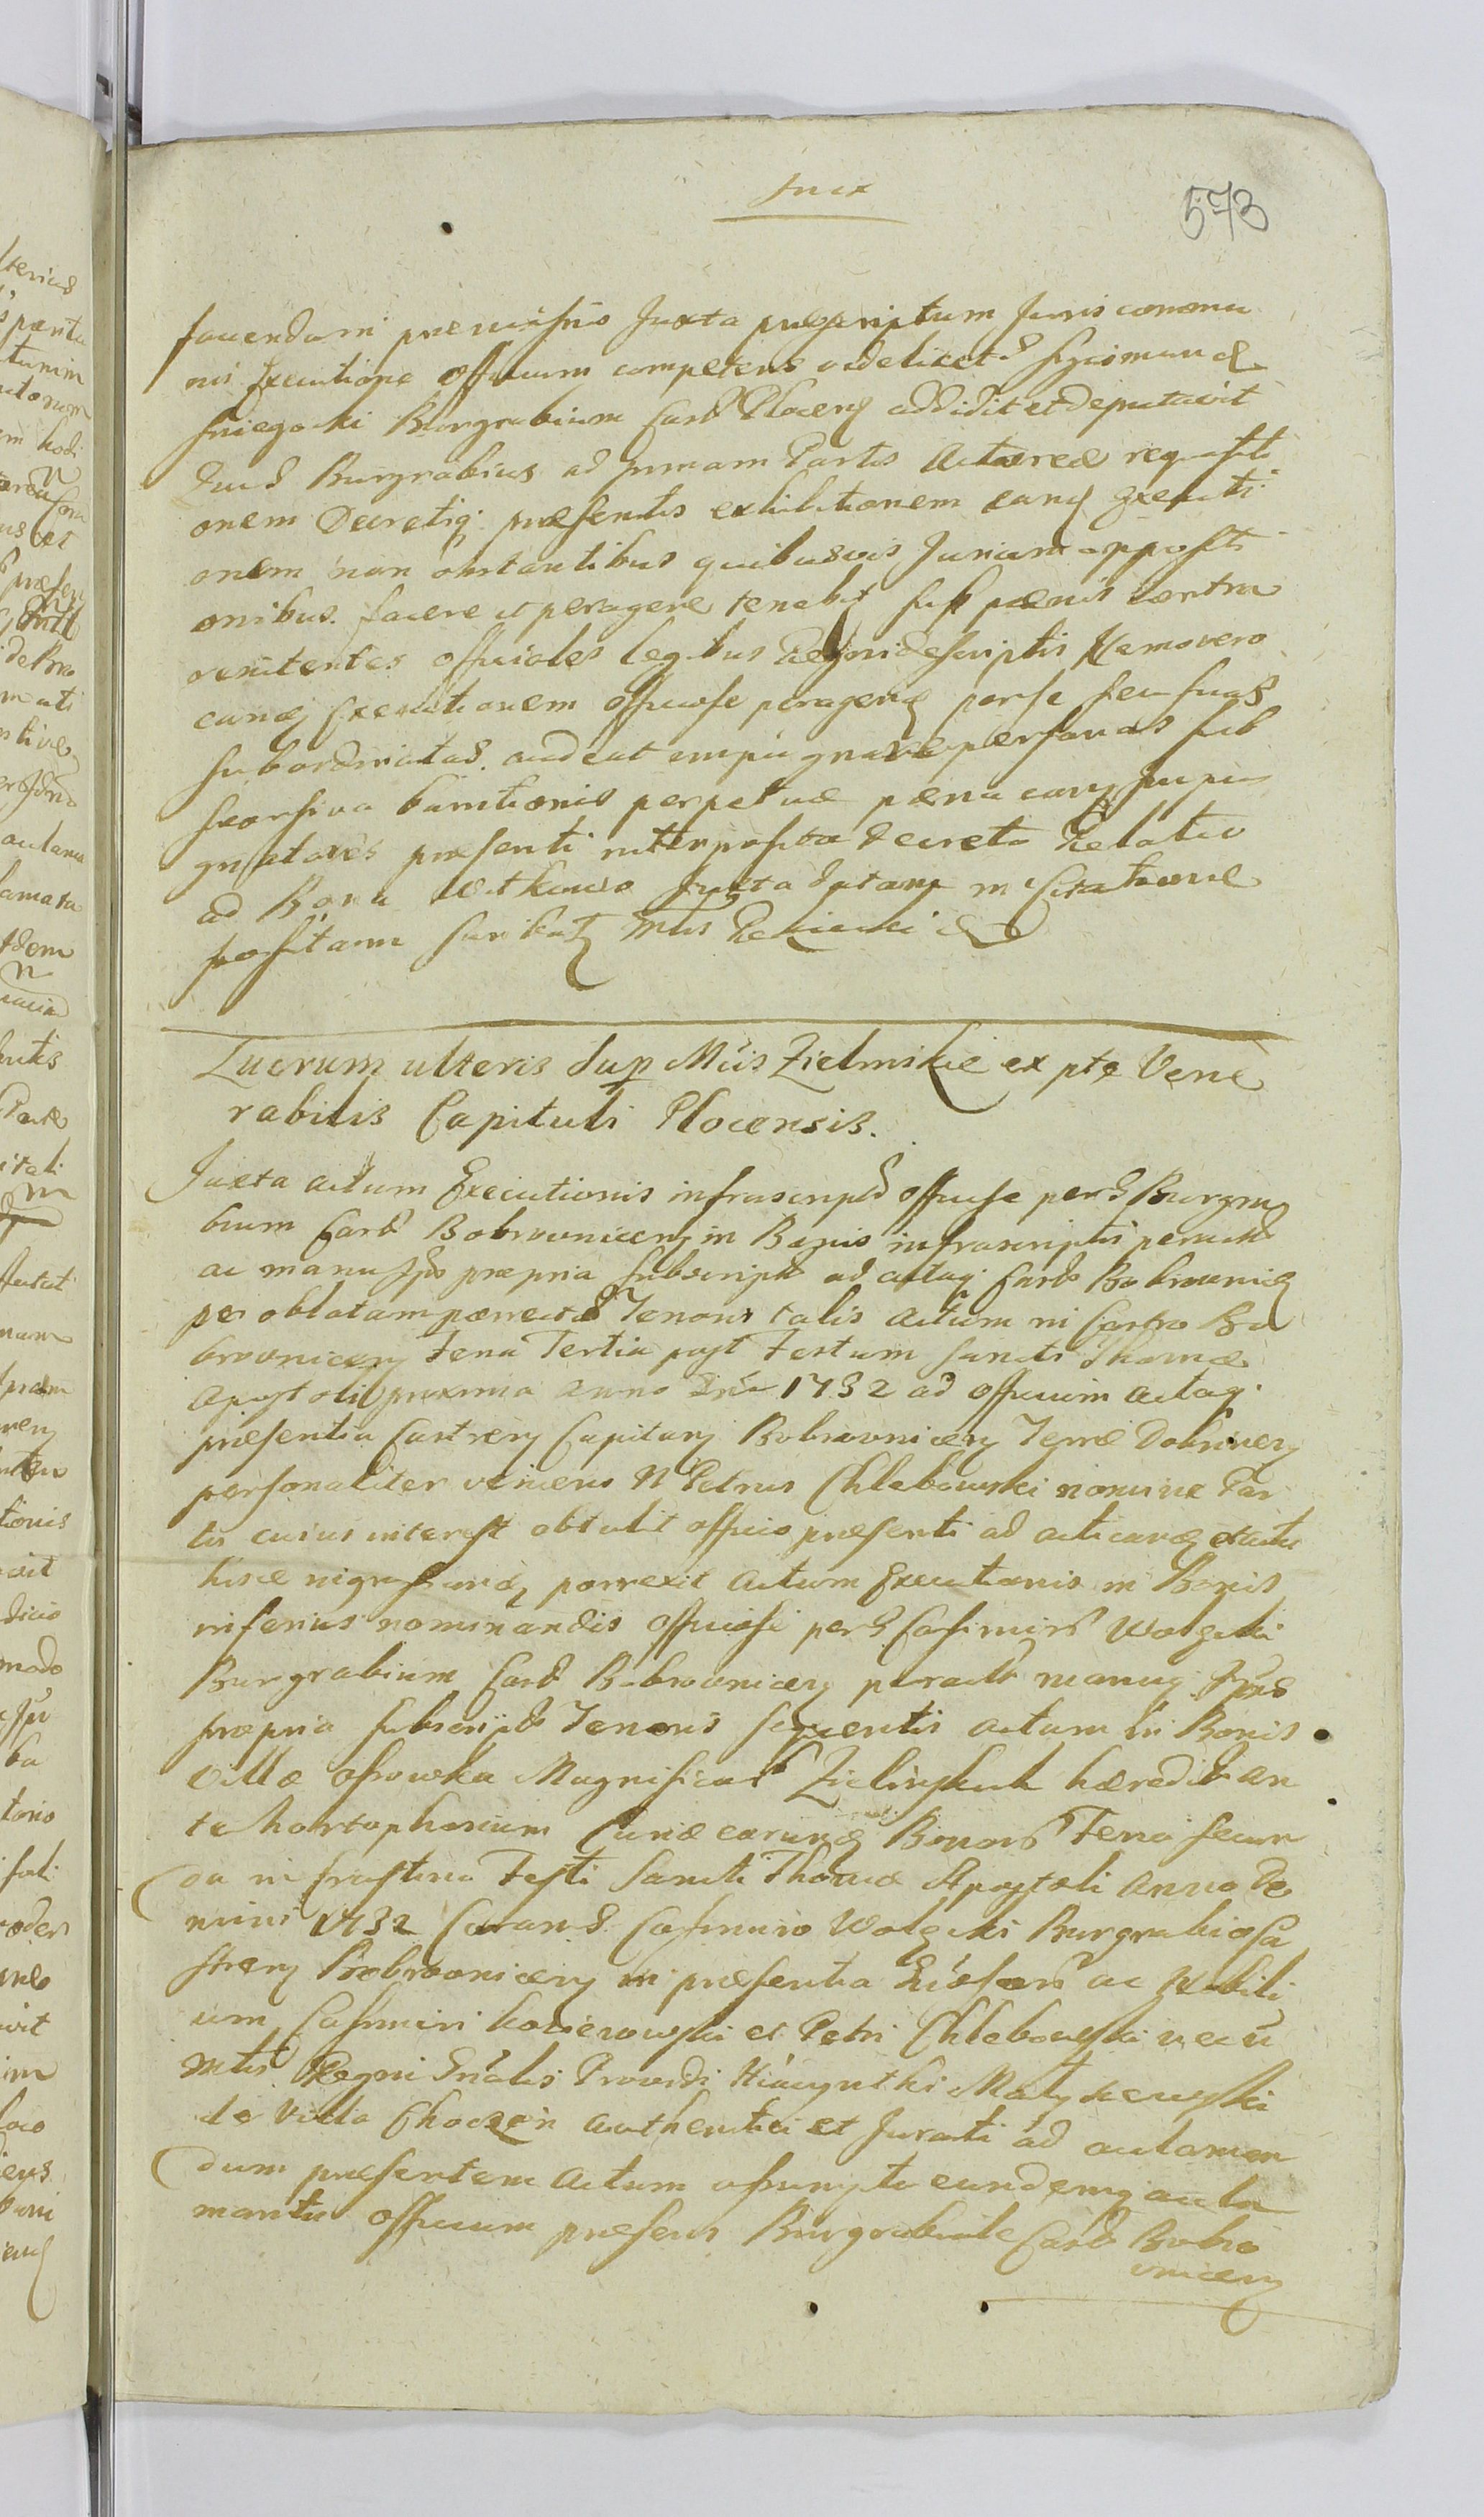 573
faciendam præmissis Juxta præscriptum Juris commu
nis Executione Officium competens videlicet G Sigismund
Burgrabium Castr Plocens addidit et deputavit
Qui G Burgrabius ad primam Partis Actoreæ requisiti
onem Decretiq præsentis exhibitionem eand Executi
onem non obstantibus quibusvis Jurium oppositi
onibus facere et peragere tenebit sub pænis contra
renitentes officiales legibus Regni descriptis Nemo vero
eand Executionem officiose peragend per se seu suas
subordinatas audeat impugnare personas sub
seorsiva bannitionis perpetuæ pæna eand impu
gnatores præsenti interposita Decreto Relatio
ad Bona Juxta datam in Citatione
positam
Lucrum ulteris sup Mcis Zielinskie ex pte Vene
rabilis Capituli Plocensis.
Juxta actum Executionis infrascript officiose per G Burgra
bium Castr Bobrovnicen in Bonis infrascriptis peract
ac manu Ips propria subscript ad actaq Castr Bobrownic
per oblatam porrect Tenoris talis Actum in Castro Bo
brovnicen Feria Tertia post Festum Sancti Thomæ
Apostoli proxima Anno Dni 1732 ad officium actaq
præsentia Castren Capitan Bobrovnicen Terræ Dobrinen
personaliter veniens N Petrus Chlebowski nomine Par
tis cuius interest obtulit officio præsenti ad acticand et actis
hisce ingrossand porrexit Actum Executionis in Bonis
inferius nominandis officiose per G Casimir Wolski
Burgrabium Castr Bobrovnicen peract manuq Ips
propria subscript Tenoris sequentis Actum in Bonis
villæ Osowka Magnificor Zielinskich hæredit an
te hortophorium Curiæ earund Bonor Feria Secun
da in Crastino Festi Sancti Thomæ Apostoli Anno Do
mini 1732 Coram G Casimiro Wolski Burgrabio Ca
stren Bobrovnicen in præsentia Grosor ac Nobili
um Casimiri et Petri Chlebowski necn
Mtis Regni Gnalis Providi Hiacynthi
de Villa authentici et Jurati ad aclaman
dum præsentem Actum assumpti eundemq acla
mantis officium præsens Burgrabiale Castr Bobro
vnicen